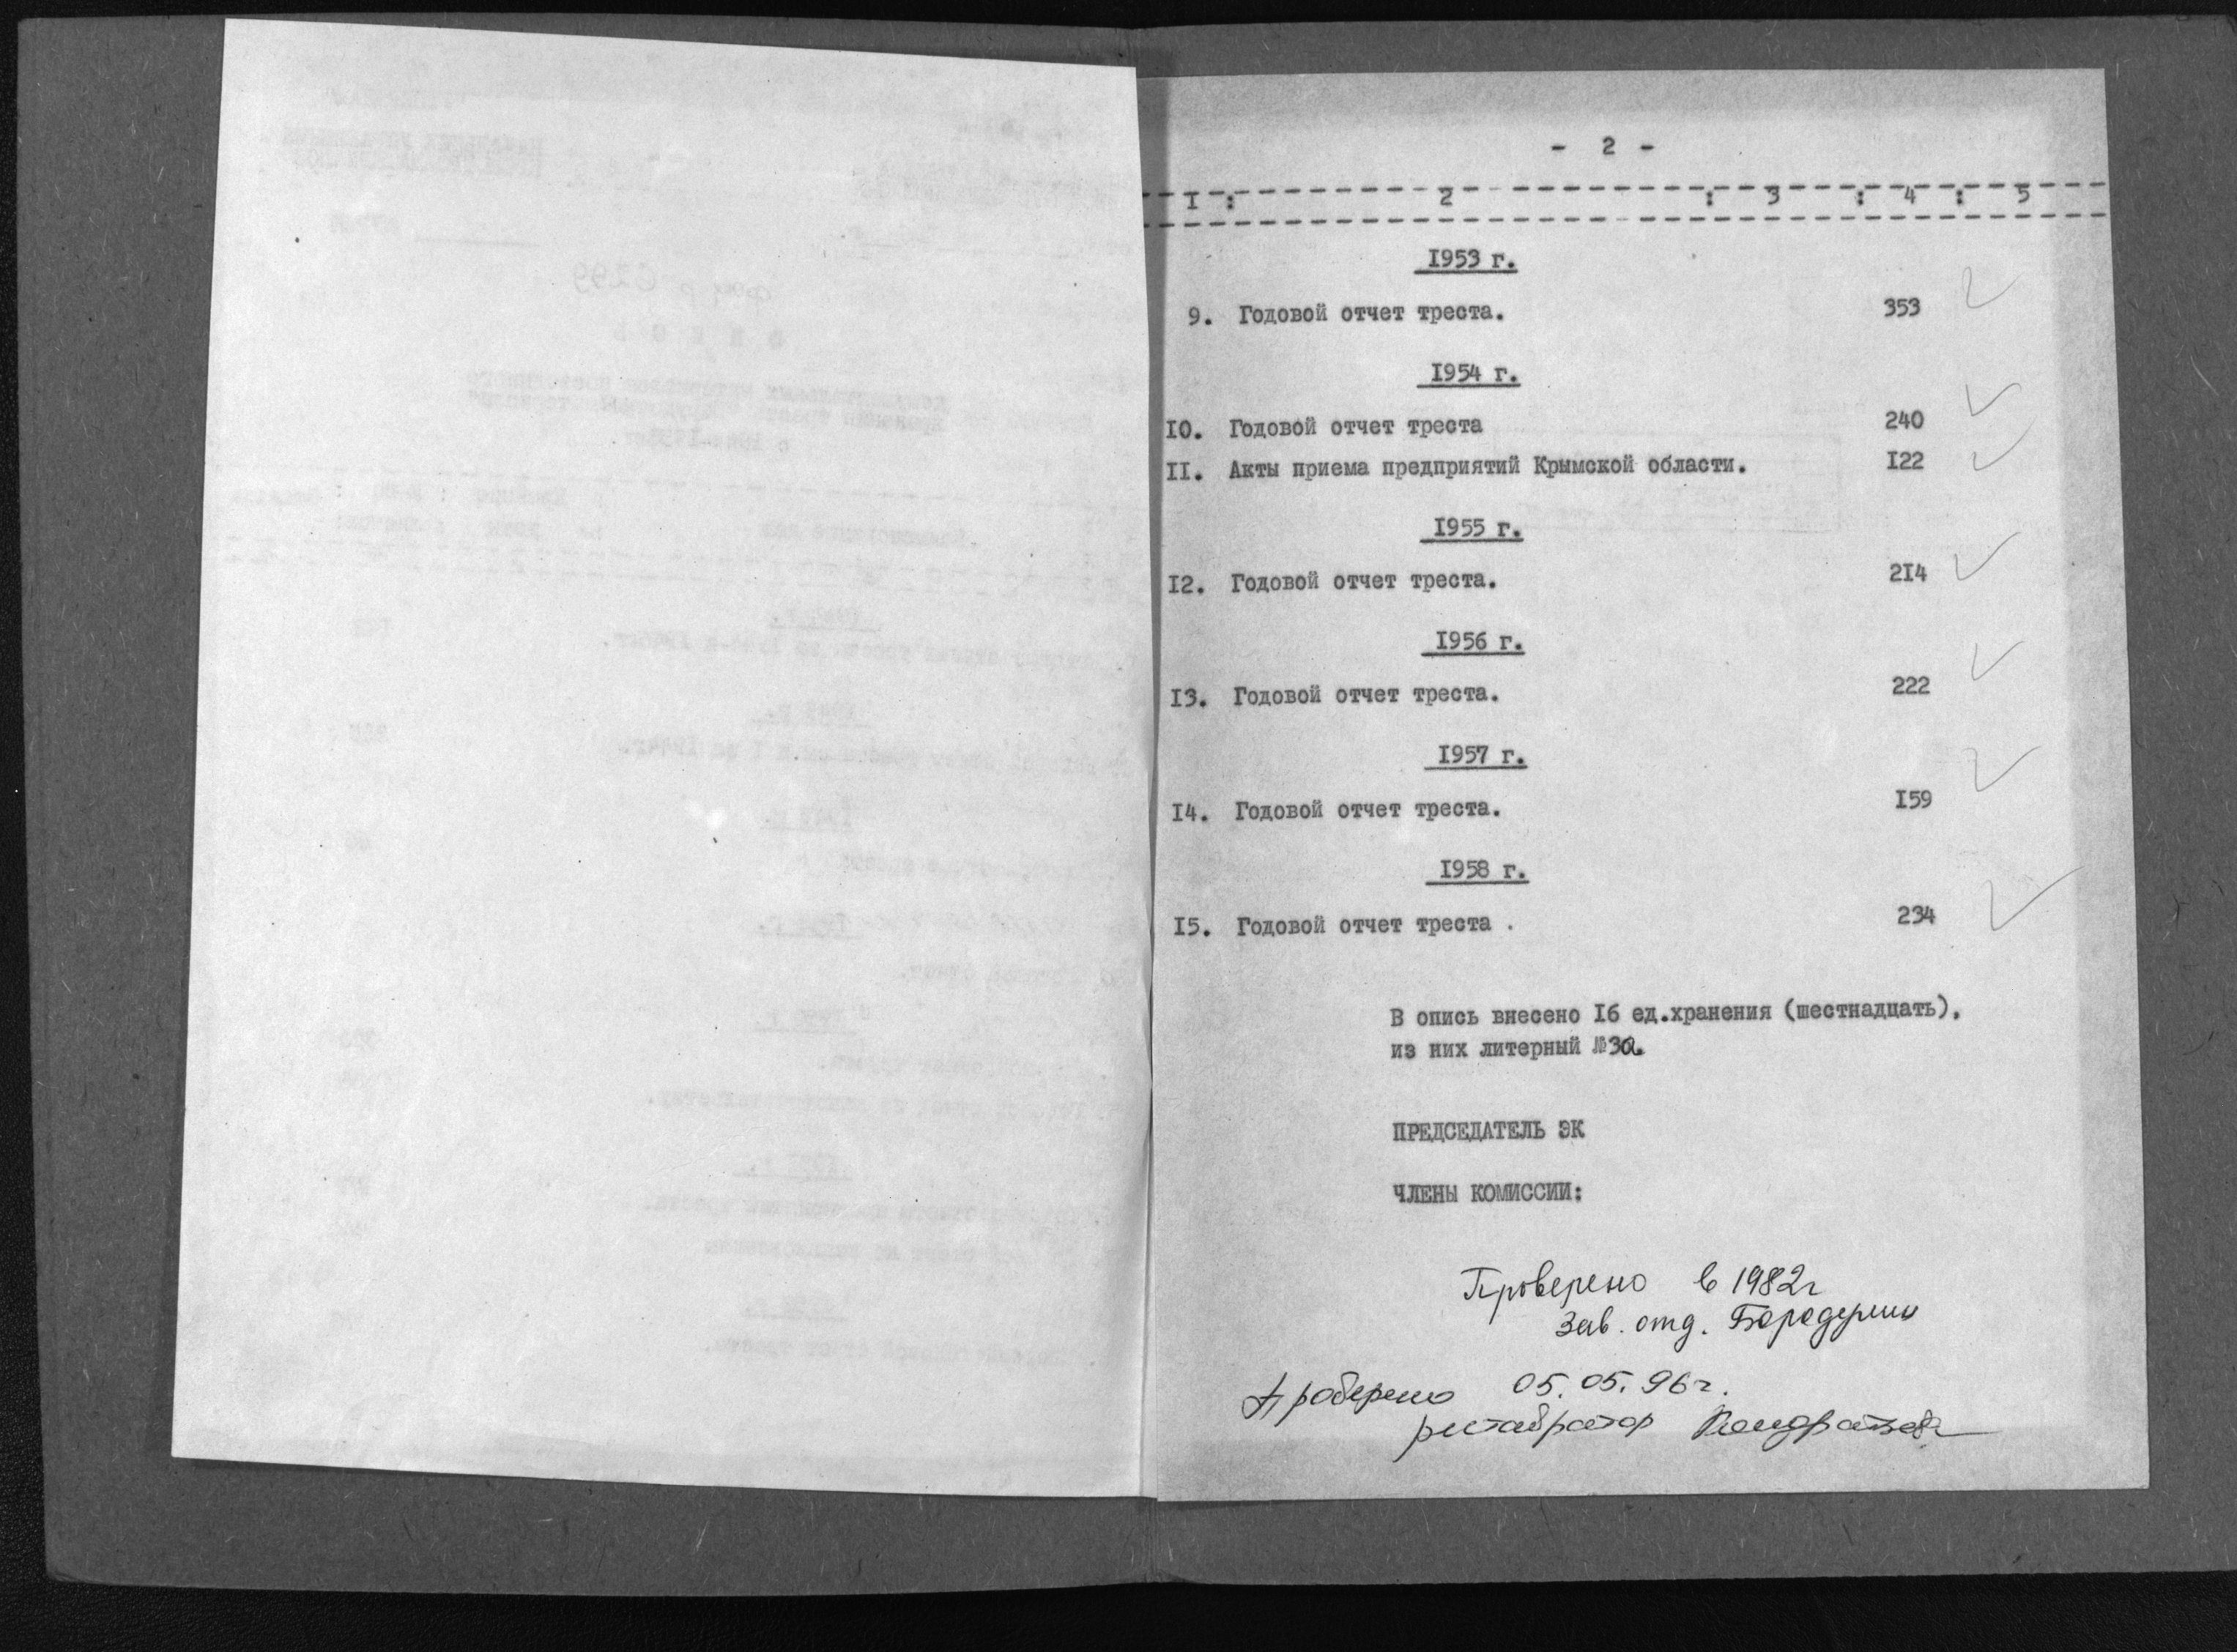 - 2 -
I : 2 : 3 : 4 : 5
I953 г.
9. Годовой отчет треста. 353
I954 г.
IO. Годовой отчет треста 240
II. Акты приема предприятий Крымской области. I22
I955 г.
I2. Годовой отчет треста. 2I4
I956 г.
I3. Годовой отчет треста. 222
I957 г.
I4. Годовой отчет треста. I59
I958 г.
I5. Годовой отчет треста . 234
В опись внесено I6 ед.хранения (шестнадцать),
из них литерный №3а.
ПРЕДСЕДАТЕЛЬ ЭК
ЧЛЕНЫ КОМИССИИ:
Проверено в 1982г
Зав. отд.
Проверено 05.05.96г.
реставратор Кондратьева